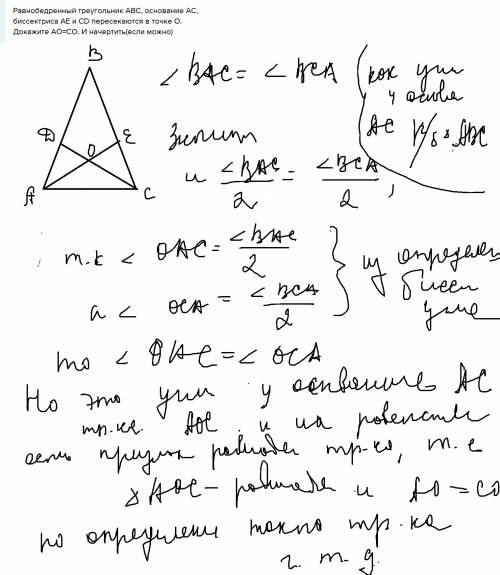 Равнобедренный треугольник ABC, основание AC,
биссектриса AE и CD пересекаются в точке O.
Докажите AO=CO. И начертить(если можно)
B
D
O
E
A
C
∠ BAC = ∠ BCA
как угл
у основ
AC р/б ABC
Значит
и ∠BAC/2 = ∠BCA/2,
т.к ∠ OAC = ∠BAC/2
а ∠ OCA = ∠BCA/2
из определен
бисс
угла
то ∠ OAC = ∠ OCA
Но это угл у основание AC
тр.ка AOC и их равенств
есть признак равнобе тр-ка, т.е
△ AOC – равнобе и AO = CO
по определени такого тр.ка
ч.т.д.